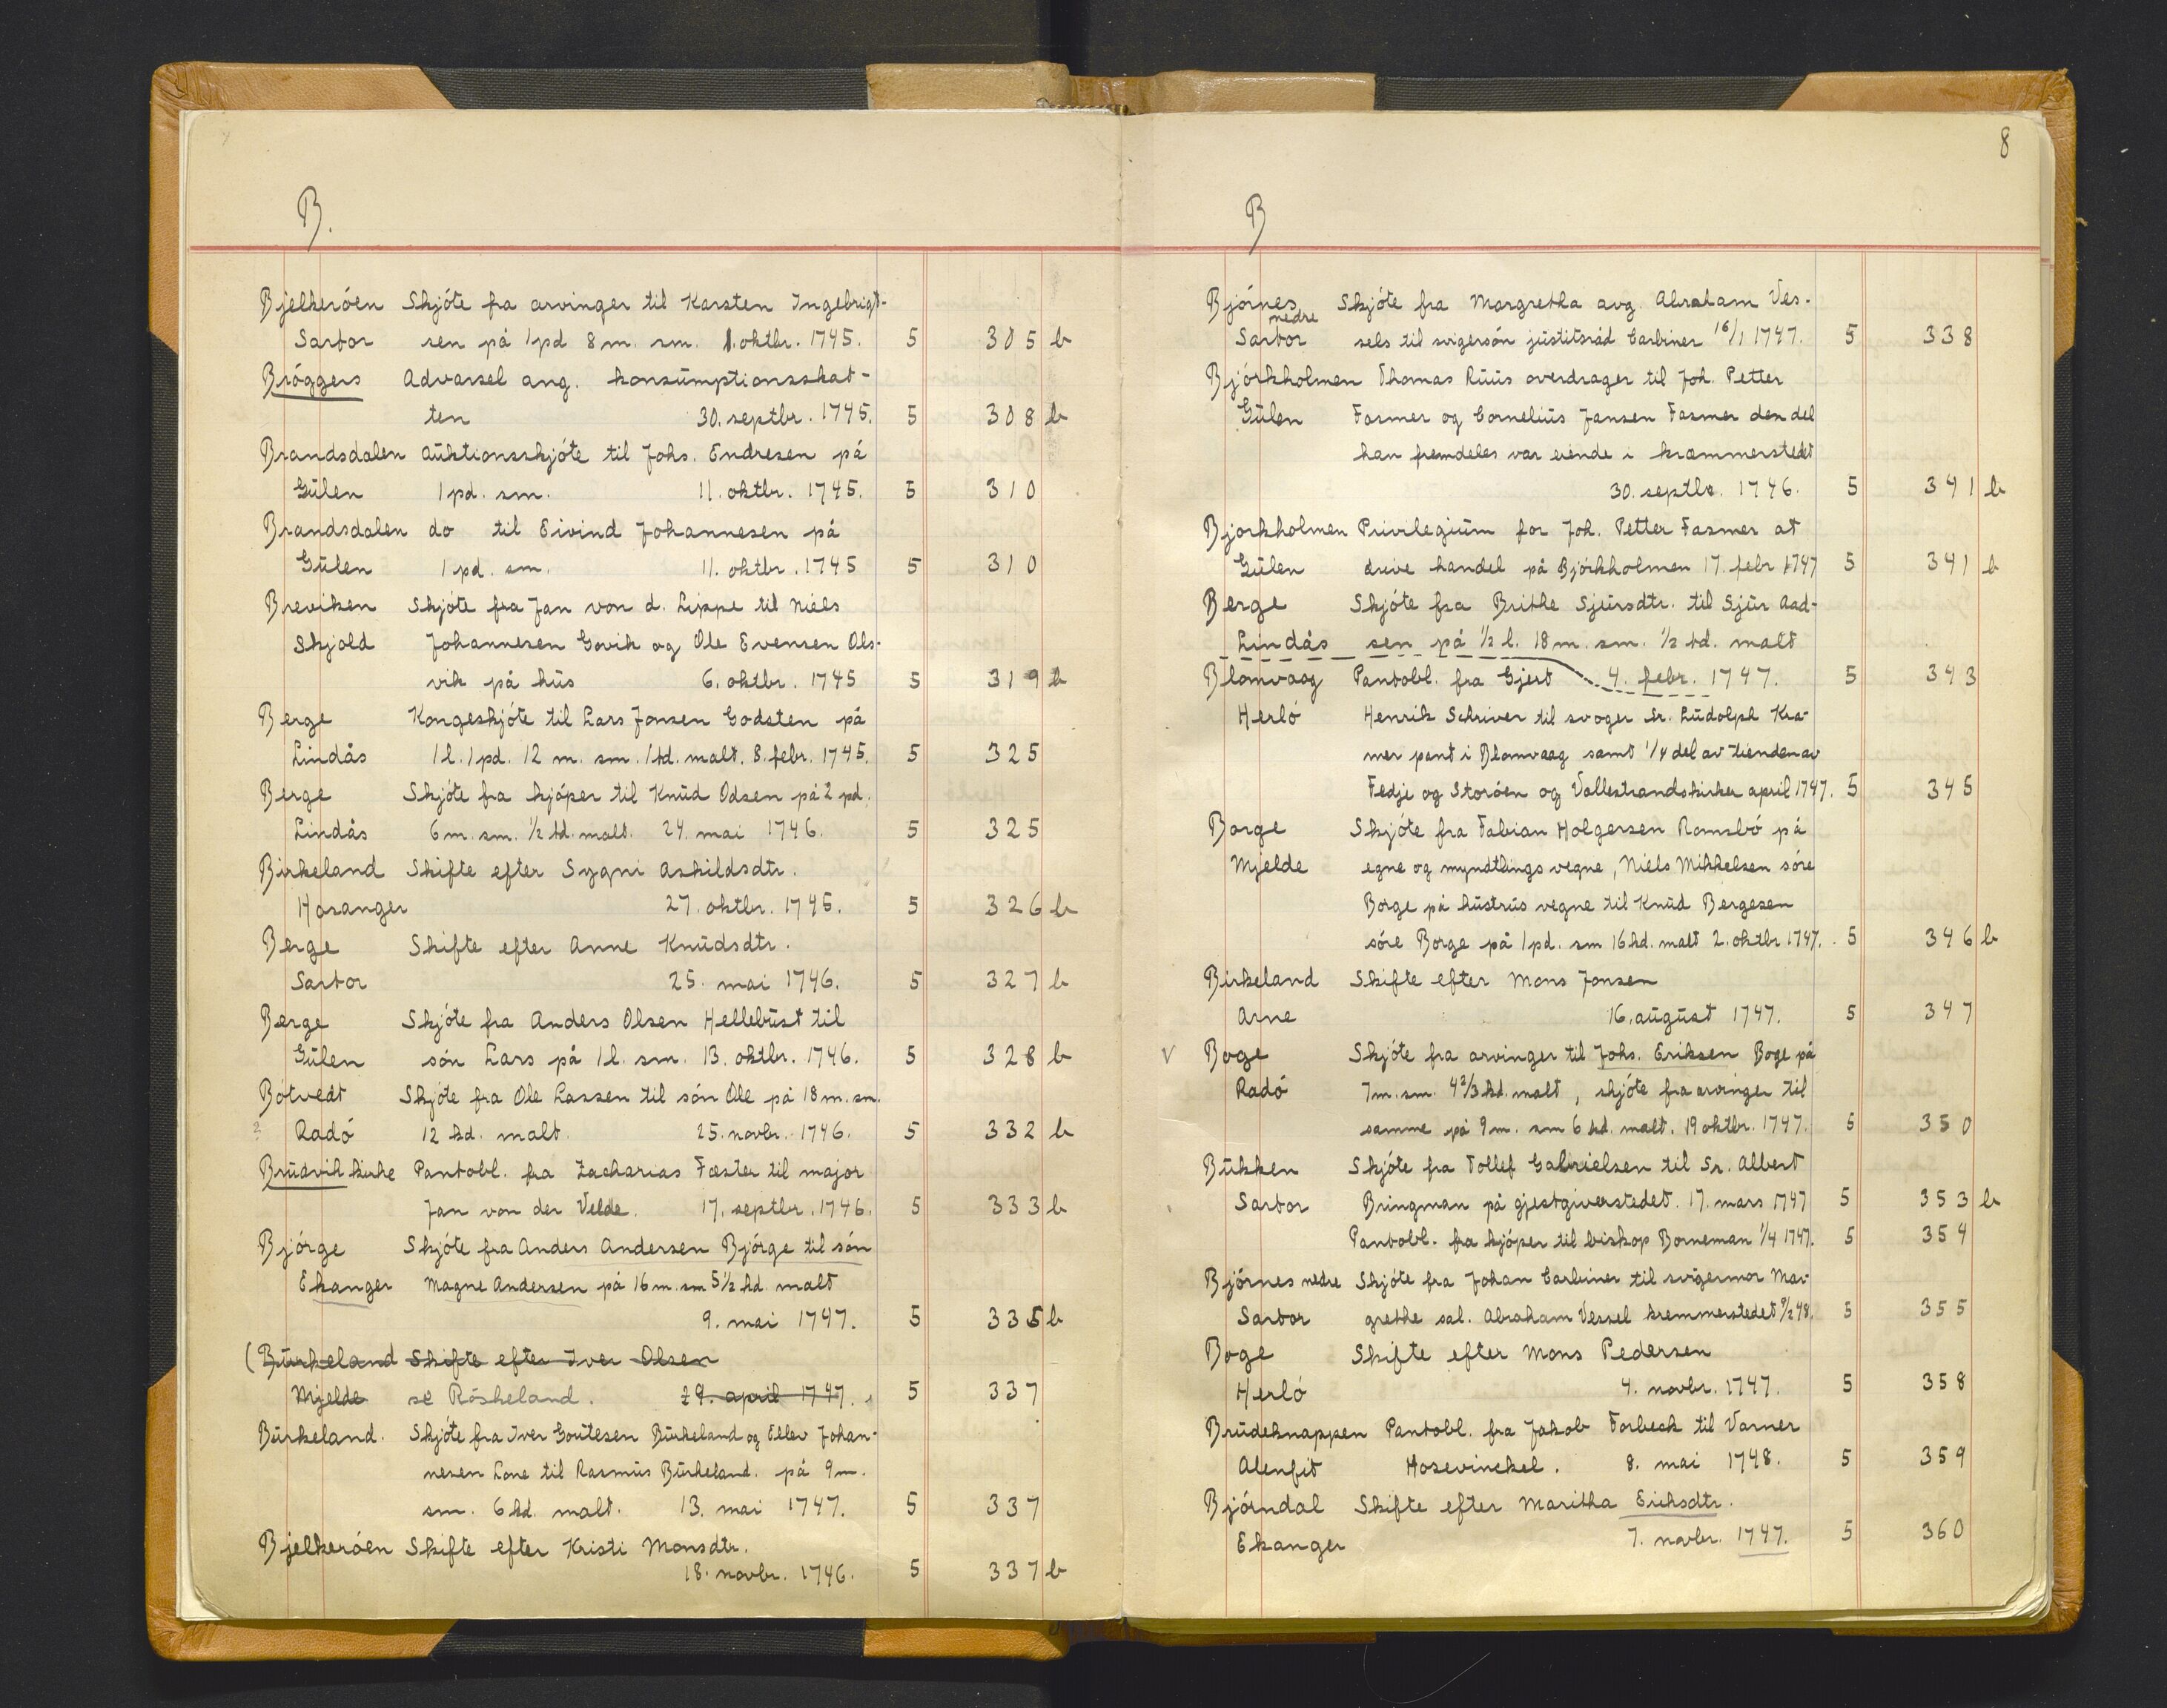 B.
Bjelkeróen Skjóte fra arvinger til Karsten Ingebrigt-
Sartor sen på 1 pd 8 m. sm. 1. oktbr. 1745. 5 305 b
Bróggers Advarsel ang. konsumptionsskat-
ten 30. septbr. 1745. 5 308 b
Brandsdalen auktionsskjóte til Johs. Endresen på
Gŭlen 1 pd. sm. 11. oktbr. 1745. 5 310
Brandsdalen do til Eivind Johannesen på
Gŭlen 1 pd. sm. 11. oktbr. 1745 5 310
Breviken Skjóte fra Jan von d. Lippe til Niels
Skjold Johannesen Govik og Ole Evensen Ols-
vik på hŭs 6. oktbr. 1745 5 319 b
Berge Kongeskjóte til Lars Jonsen Godsten på
Lindås 1 l. 1 pd. 12 m. sm. 1 td. malt. 8. febr. 1745. 5 325
Berge Skjóte fra kjóper til Knŭd Odsen på 2 pd.
Lindås 6 m. sm. ½ td. malt. 24. mai 1746. 5 325
Birkeland Skifte efter Sygni Askildsdtr.
Hosanger 27. oktbr. 1745. 5 326 b
Berge Skifte efter Anne Knŭdsdtr.
Sartor 25. mai 1746. 5 327 b
Berge Skjóte fra Anders Olsen Hellebŭst til
Gŭlen són Lars på 1 l. sm. 13. oktbr. 1746. 5 328 b
Bótvedt Skjóte fra Ole Lassen til són Ole på 18 m. sm.
? Radó 12 kd. malt. 25. novbr. 1746. 5 332 b
Brŭdvik kirke Pantobl. fra Zacharias Fæster til major
Jan von der Velde. 17. septbr. 1746. 5 333 b
Bjórge Skjóte fra Anders Andersen Bjórge til són
Ekanger Magne Andersen på 16 m. sm 5½ kd. malt
9. mai 1747. 5 335 b
(Bŭrkeland Skifte efter Iver Olsen
Mjelde se Róskeland. 29. april 1747. 5 337
Bŭrkeland. Skjóte fra Iver Goutesen Bŭrkeland og Ellev Johan-
nesen Lone til Rasmŭs Bŭrkeland. på 9 m.
sm. 6 kd. malt. 13. mai 1747. 5 337
Bjelkeróen Skifte efter Kristi Monsdtr.
18. novbr. 1746. 5 337 b
8
B
Bjórnes nedre Skjóte fra Margretha avg. Abraham Ves-
Sartor sels til svigersón jŭstitsråd Carbiner 16/1 1747. 5 338
Bjórkholmen Thomas Rŭŭs overdrager til Joh. Petter
Gŭlen Fasmer og Corneliŭs Jansen Fasmer den del
han fremdeles var eiende i kræmmerstedet
30. septbr. 1746. 5 341 b
Bjorkholmen Privilegiŭm for Joh. Petter Fasmer at
Gŭlen drive handel på Bjórkholmen 17. febr 1747 5 341 b
Berge Skjóte fra Brithe Sjŭrsdtr. til Sjŭr Aad-
Lindås sen på ½ l. 18 m. sm. ½ td. malt
4. febr. 1747. 5 343
Blomvaag Pantobl. fra Gjert
Herló Henrik Schriver til svoger Sr. Lŭdolph Kra-
mer pant i Blomvaag samt ¼ del av tienden av
Fedje og Storóen og Vallestrandskirker april 1747. 5 345
Borge Skjóte fra Fabian Holgersen Romsbó på
Mjelde egne og myndtlings vegne, Niels Mikkelsen sóre
Borge på hŭstrŭs vegne til Knŭd Bergesen
sóre Borge på 1 pd. sm 16 kd. malt 2. oktbr 1747. 5 346 b
Birkeland Skifte efter Mons Jonsen
Arne 16. aŭgŭst 1747. 5 347
V Boge Skjóte fra arvinger til Johs. Eriksen Boge på
Radó 7 m. sm. 4 2/3 kd. malt, skjóte fra arvinger til
samme på 9 m. sm 6 kd. malt. 19 oktbr. 1747. 5 350
Bŭkken Skjóte fra Tollef Gabrielsen til Sr. Albert
Sartor Bringman på gjestgiverstedet. 17. mars 1747 5 353 b
Pantobl. fra kjóper til biskop Borneman 1/4 1747. 5 354
Bjórnes nedre Skjóte fra Johan Carbiner til svigermor Mar-
Sartor grethe sal. Abraham Vessel kremmerstedet 9/2 48. 5 355
Boge Skifte efter Mons Pedersen
Herló 4. novbr. 1747. 5 358
Brŭdeknappen Pantobl. fra Jakob Forbeck til Varner
Alenfit Hosevinckel. 8. mai 1748. 5 359
Bjórndal Skifte efter Maritha Eriksdtr.
Ekanger 7. novbr. 1747. 5 360